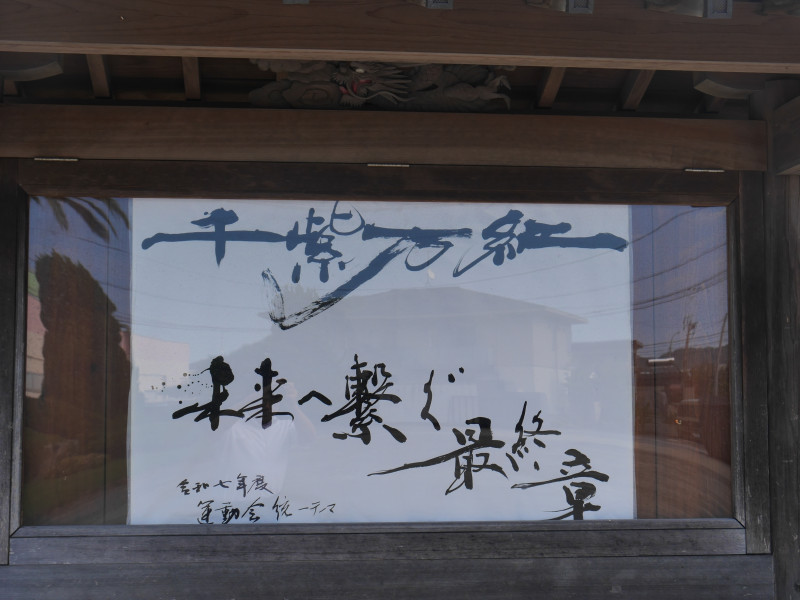 千紫万紅
未来へ繋ぐ最終章
令和七年度
運動会統一テーマ